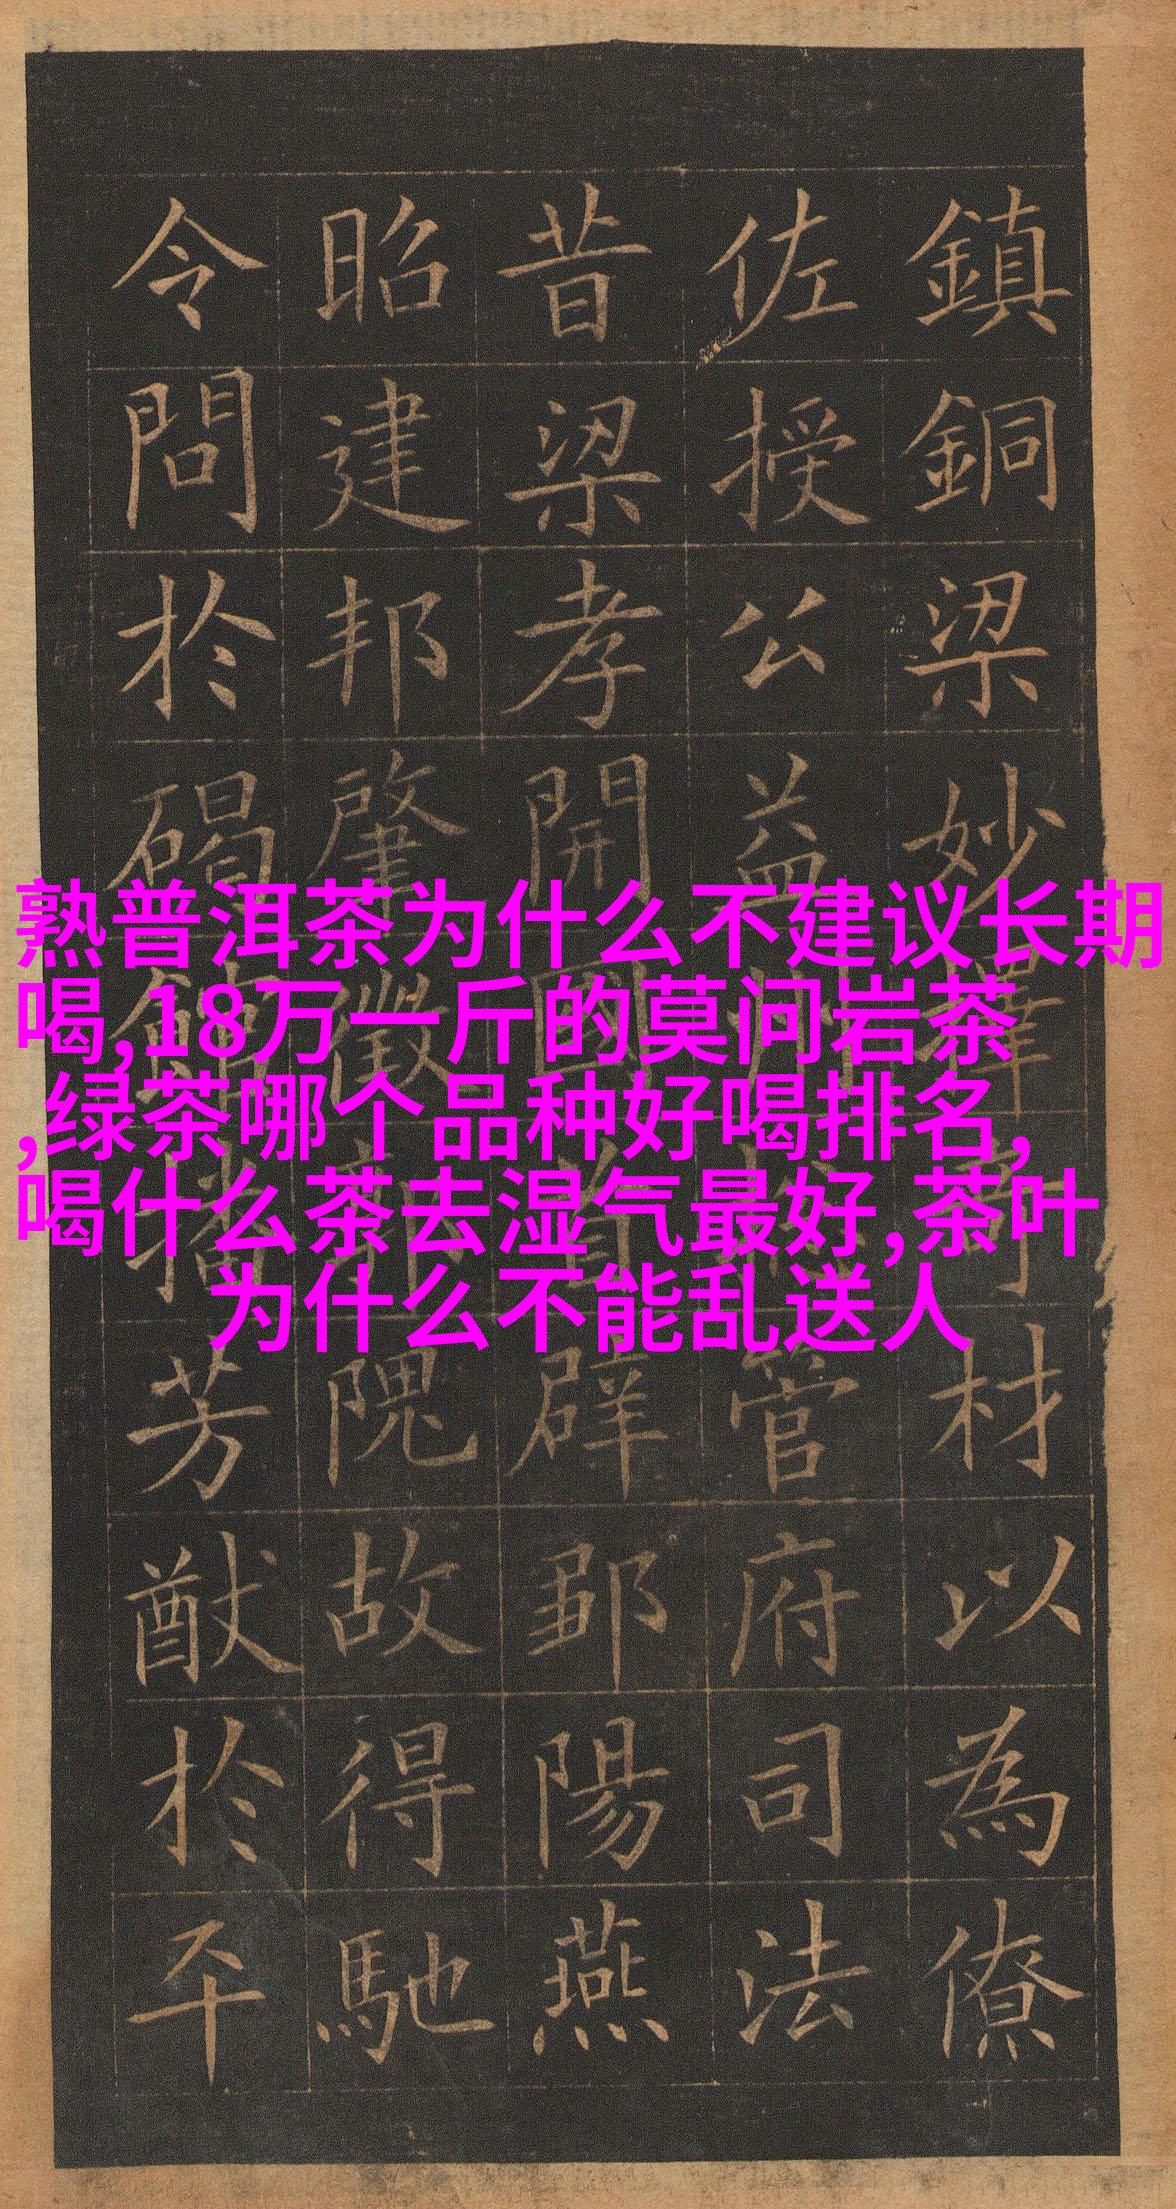 熟普洱茶为什么不建议长期
喝,18万一斤的莫问岩茶
,绿茶哪个品种好喝排名,
喝什么茶去湿气最好,茶叶
为什么不能乱送人
鎮銅梁妙擇奇材以為僚
佐授公益州總管府司法
昔梁孝開國首辟鄒陽燕
昭建邦肇徵郭隗故得馳
令問於碣館播芳猷於平